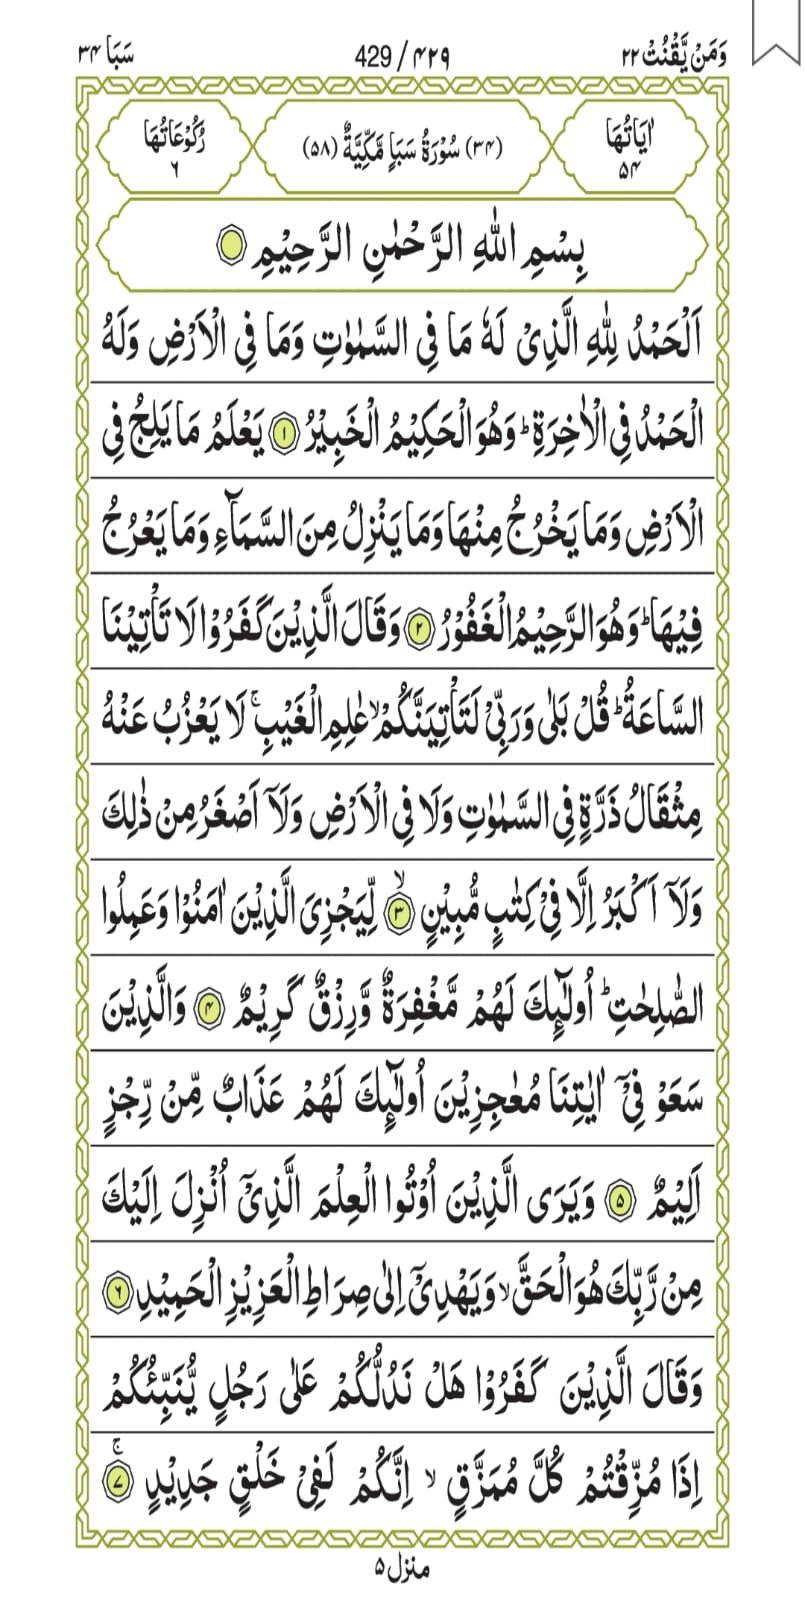 وَمَنْ يَّقْنُتْ ۲۲ 429 / ۴۲۹ سَبَاِ ۳۴
اٰیَاتُهَا ۵۴ (۳۴) سُوْرَةُ سَبَاٍ مَّكِّيَّةٌ (۵۸) رُكُوْعَاتُهَا ۶
بِسْمِ اللّٰهِ الرَّحْمٰنِ الرَّحِيْمِ
اَلْحَمْدُ لِلّٰهِ الَّذِيْ لَهٗ مَا فِي السَّمٰوٰتِ وَمَا فِي الْاَرْضِ وَلَهُ
الْحَمْدُ فِي الْاٰخِرَةِ ؕ وَهُوَ الْحَكِيْمُ الْخَبِيْرُ ۱ يَعْلَمُ مَا يَلِجُ فِي
الْاَرْضِ وَمَا يَخْرُجُ مِنْهَا وَمَا يَنْزِلُ مِنَ السَّمَآءِ وَمَا يَعْرُجُ
فِيْهَا ؕ وَهُوَ الرَّحِيْمُ الْغَفُوْرُ ۲ وَقَالَ الَّذِيْنَ كَفَرُوْا لَا تَاْتِيْنَا
السَّاعَةُ ؕ قُلْ بَلٰى وَرَبِّيْ لَتَاْتِيَنَّكُمْ ۙ عٰلِمِ الْغَيْبِ ۚ لَا يَعْزُبُ عَنْهُ
مِثْقَالُ ذَرَّةٍ فِي السَّمٰوٰتِ وَلَا فِي الْاَرْضِ وَلَاۤ اَصْغَرُ مِنْ ذٰلِكَ
وَلَاۤ اَكْبَرُ اِلَّا فِيْ كِتٰبٍ مُّبِيْنٍ ۙ ۳ لِّيَجْزِيَ الَّذِيْنَ اٰمَنُوْا وَعَمِلُوا
الصّٰلِحٰتِ ؕ اُولٰٓئِكَ لَهُمْ مَّغْفِرَةٌ وَّرِزْقٌ كَرِيْمٌ ۴ وَالَّذِيْنَ
سَعَوْ فِيْۤ اٰيٰتِنَا مُعٰجِزِيْنَ اُولٰٓئِكَ لَهُمْ عَذَابٌ مِّنْ رِّجْزٍ
اَلِيْمٌ ۵ وَيَرَى الَّذِيْنَ اُوْتُوا الْعِلْمَ الَّذِيْۤ اُنْزِلَ اِلَيْكَ
مِنْ رَّبِّكَ هُوَ الْحَقَّ ۙ وَيَهْدِيْۤ اِلٰى صِرَاطِ الْعَزِيْزِ الْحَمِيْدِ ۶
وَقَالَ الَّذِيْنَ كَفَرُوْا هَلْ نَدُلُّكُمْ عَلٰى رَجُلٍ يُّنَبِّئُكُمْ
اِذَا مُزِّقْتُمْ كُلَّ مُمَزَّقٍ ۙ اِنَّكُمْ لَفِيْ خَلْقٍ جَدِيْدٍ ۚ ۷
منزل ۵